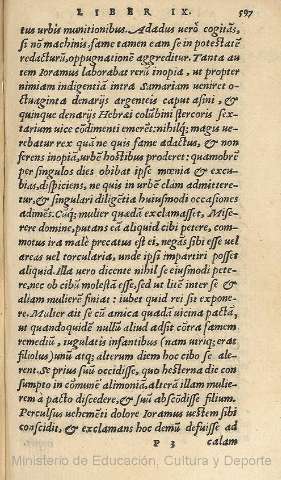 LIBER IX. 597
tus urbis munitionibus. Adadus uerò cogitãs,
si nõ machinis, fame tamen eam se in potestatẽ
redacturũ, oppugnationẽ aggreditur. Tanta au
tem Ioramus laborabat rerũ inopia, ut propter
nimiam indigentiã intra Samariam veniret o-
ctuaginta denarijs argenteis caput asini, &
quinque denarijs Hebræi colũbini stercoris sex-
tarium uice cõdimenti emerẽt: nihilq; magis ue-
rebatur rex quã ne quis fame adactus, & non
ferens inopiã, urbẽ hostibus proderet: quamobrẽ
per singulos dies obibat ipse mœnia et excu-
bias, dispiciens, ne quis in urbẽ clam admittere-
tur, & singulari diligẽtia huiusmodi occasiones
adimẽs. Cũq; mulier quædã exclamasset, Mise-
rere domine, putans eã aliquid cibi petere, com-
motus ira malè precatus est ei, negãs sibi esse vel
areas vel torcularia, unde ipsi impartiri posset
aliquid. Illa vero dicente nihil se eiusmodi pete-
re, nec ob cibũ molestã esse, sed ut litẽ inter se &
aliam mulierẽ finiat: iubet quid rei sit expone
re. Mulier ait se cũ amica quadã vicina pactã,
ut quandoquidẽ nullũ aliud adsit cõtra famem
remediũ, iugulatis infantibus (nam utriq; erat
filiolus) unũ atq; alterum diem hoc cibo se ale-
rent. Se prius suũ occidisse, quo hesterna die con
sumpto in cõmune alimoniã, alterã illam mulie-
rem a pacto discedere, & suũ abscõdisse filium.
Perculsus uehemẽti dolore Ioramus uestem sibi
conscidit, & exclamans hoc demũ defuisse ad
P 3 calam
Ministerio de Educación, Cultura y Deporte